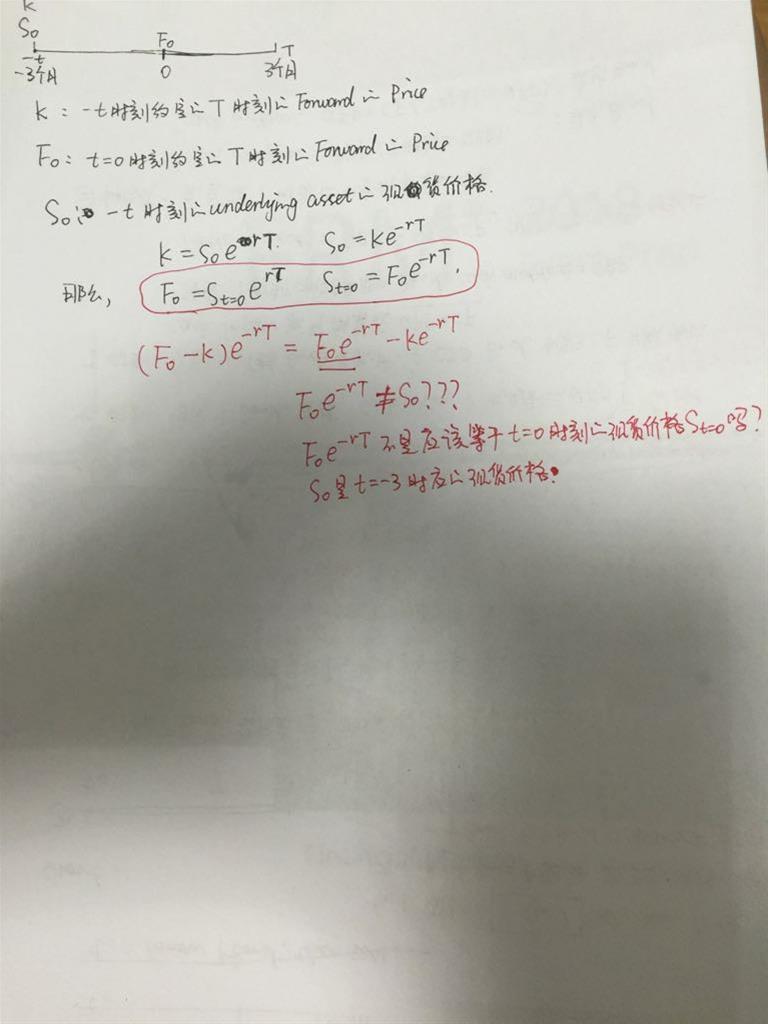 K
S₀ F₀
-t T
-3个月 0 3个月
K: -t时刻约定的T时刻的Forward的Price
F₀: t=0时刻约定的T时刻的Forward的Price
S₀: -t时刻的underlying asset的现货价格.
K = S₀e^{rT}. S₀ = Ke^{-rT}
那么, F₀ = S_{t=0}e^{rT} S_{t=0} = F₀e^{-rT}.
(F₀-K)e^{-rT} = F₀e^{-rT} - Ke^{-rT}
F₀e^{-rT} ≠ S₀???
F₀e^{-rT} 不是应该等于t=0时刻的现货价格S_{t=0}吗?
S₀是t=-3时应的现货价格.